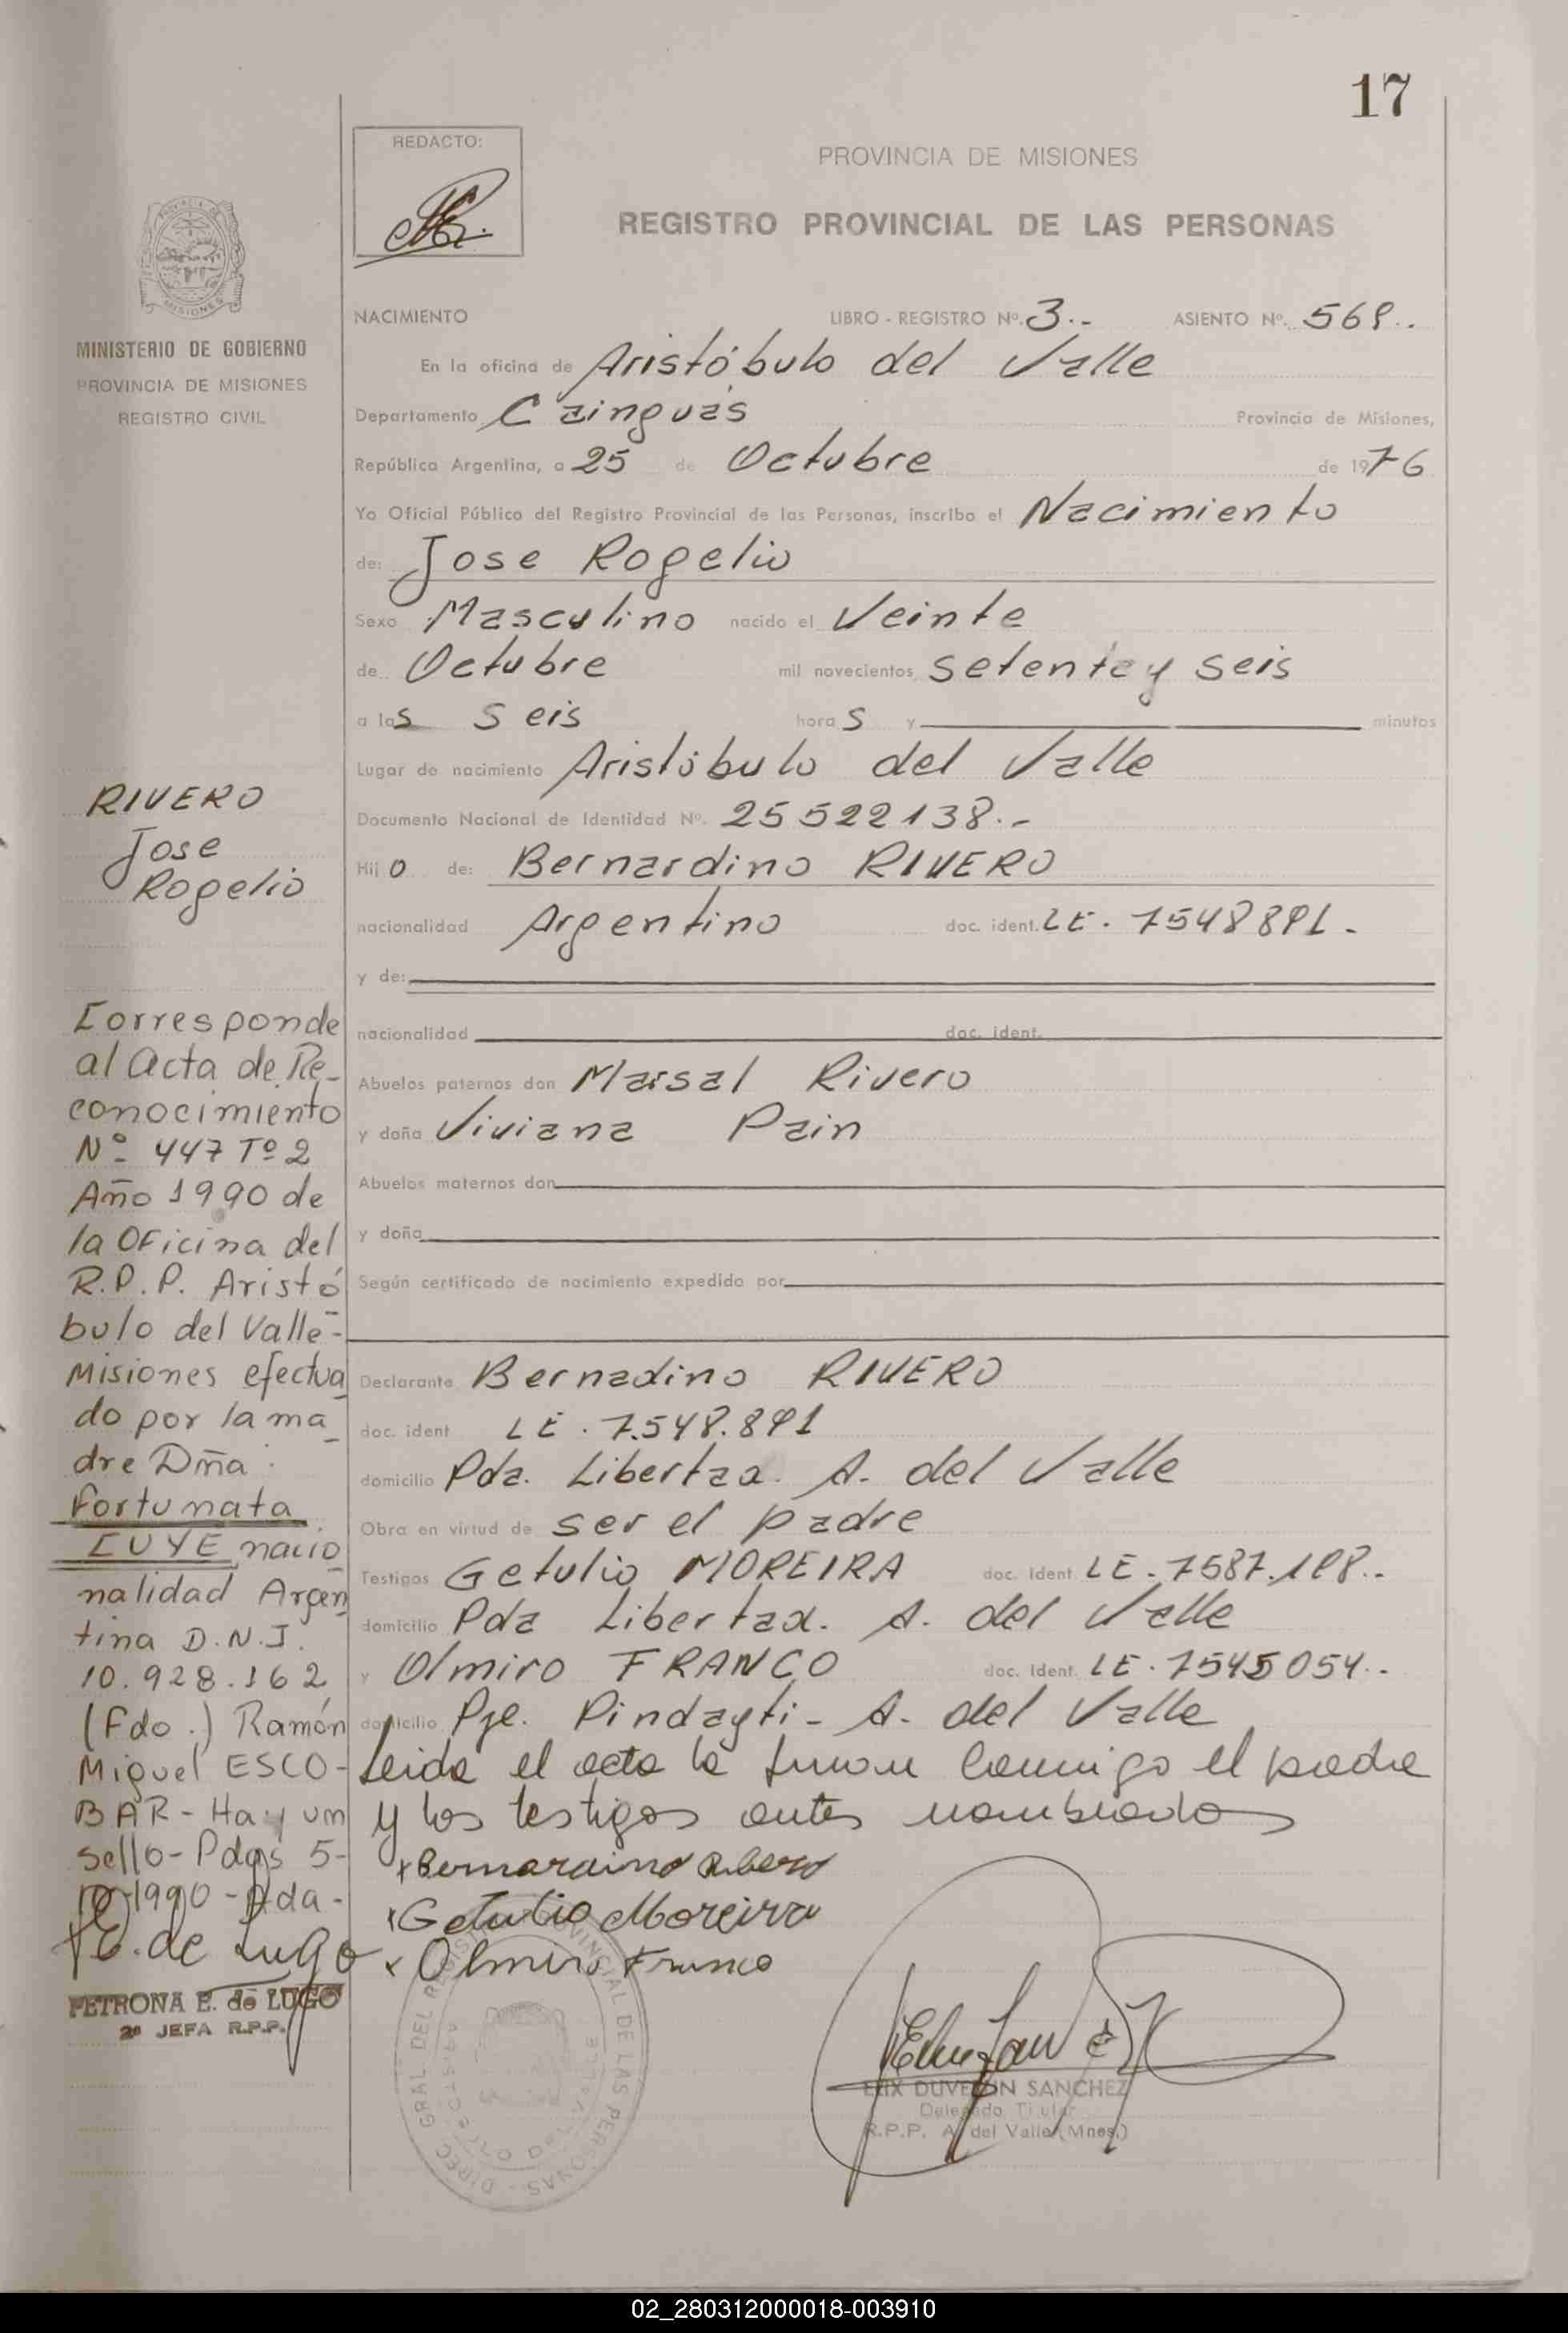 17
REDACTO:
PROVINCIA DE MISIONES
REGISTRO PROVINCIAL DE LAS PERSONAS
MINISTERIO DE GOBIERNO
PROVINCIA DE MISIONES
REGISTRO CIVIL
NACIMIENTO LIBRO - REGISTRO Nº. 3.- ASIENTO Nº. 569..
En la oficina de Aristóbulo del Valle
Departamento Cainguás Provincia de Misiones,
República Argentina, a 25 de Octubre de 1976
Yo Oficial Público del Registro Provincial de las Personas, inscribo el Nacimiento
de: Jose Rogelio
Sexo Masculino nacido el Veinte
de Octubre mil novecientos setenta y seis
a las seis horas y minutos
Lugar de nacimiento Aristóbulo del Valle
Documento Nacional de Identidad Nº. 25522138.-
Hijo de: Bernardino RIVERO
nacionalidad Argentino doc. ident. LE. 7548891.-
y de:
nacionalidad doc. ident.
Abuelos paternos don Marsal Rivero
y doña Viviana Pain
Abuelos maternos don
y doña
Según certificado de nacimiento expedido por
Declarante Bernadino RIVERO
doc. ident LE. 7.548.891
domicilio Pda. Libertad. A. del Valle
Obra en virtud de ser el padre
Testigos Getulio MOREIRA doc. ident. LE. 7587.198.-
domicilio Pda Libertad. A. del Valle
y Olmiro FRANCO doc. ident. LE. 7545054.-
domicilio Pje. Pindayti- A. del Valle
Leida el acta la firman conmigo el padre
y los testigos antes nombrados
Bernardino Ribero
Getulio Moreira
Olmiro Franco
RIVERO
Jose
Rogelio
Corresponde
al Acta de Re-
conocimiento
Nº 447 Tº 2
Año 1990 de
la Oficina del
R.P.P. Aristó
bulo del Valle-
Misiones efectua
do por la ma
dre Dña.
Fortunata
CUYE, nacio
nalidad Argen
tina D.N.I.
10.928.162
(Fdo.) Ramón
Miguel ESCO-
BAR- Hay un
sello- Pdas 5-
10-1990-
E. de Lugo
PETRONA E. de LUGO
2ª JEFA R.P.P.
DIREC. GRAL. DEL REGISTRO PROVINCIAL DE LAS PERSONAS
ARISTOBULO DEL VALLE
ELIX DUVELON SANCHEZ
Delegado Titular
R.P.P. A. del Valle (Mnes.)
02_280312000018-003910